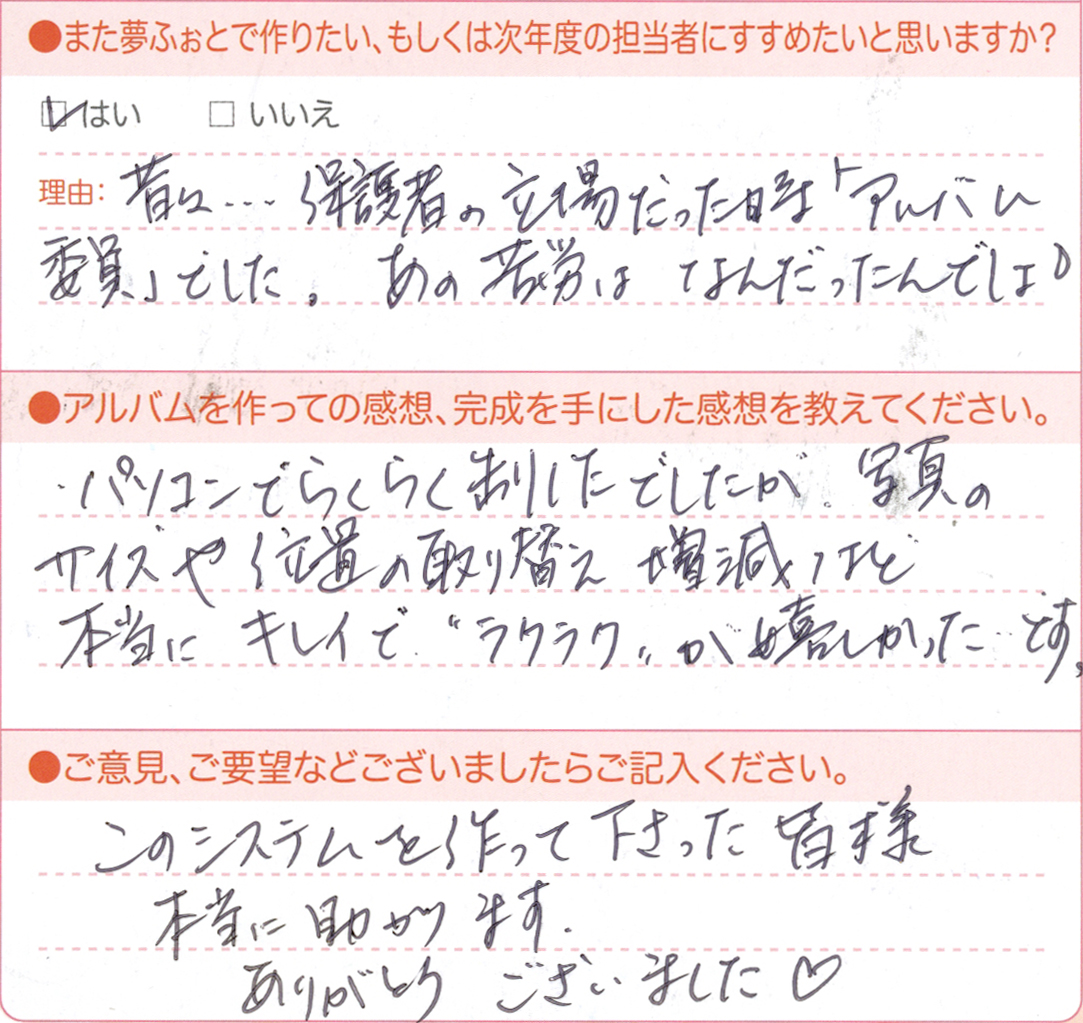 ●また夢ふぉとで作りたい、もしくは次年度の担当者にすすめたいと思いますか?
はい □ いいえ
理由: 昔は… 保護者の立場だった時「アルバム
委員」でした。 あの苦労は なんだったんでしょう
●アルバムを作っての感想、完成を手にした感想を教えてください。
・パソコンでらくらく 制した でしたが 写真の
サイズや位置の取り替え 増減 など
本当に キレイで "ラクラク" が嬉しかった です。
●ご意見、ご要望などございましたらご記入ください。
このシステムを作って下さった 皆様
本当に 助かります.
ありがとう ございました♡